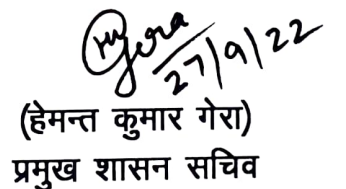 27/9/22
(हेमन्त कुमार गेरा)
प्रमुख शासन सचिव